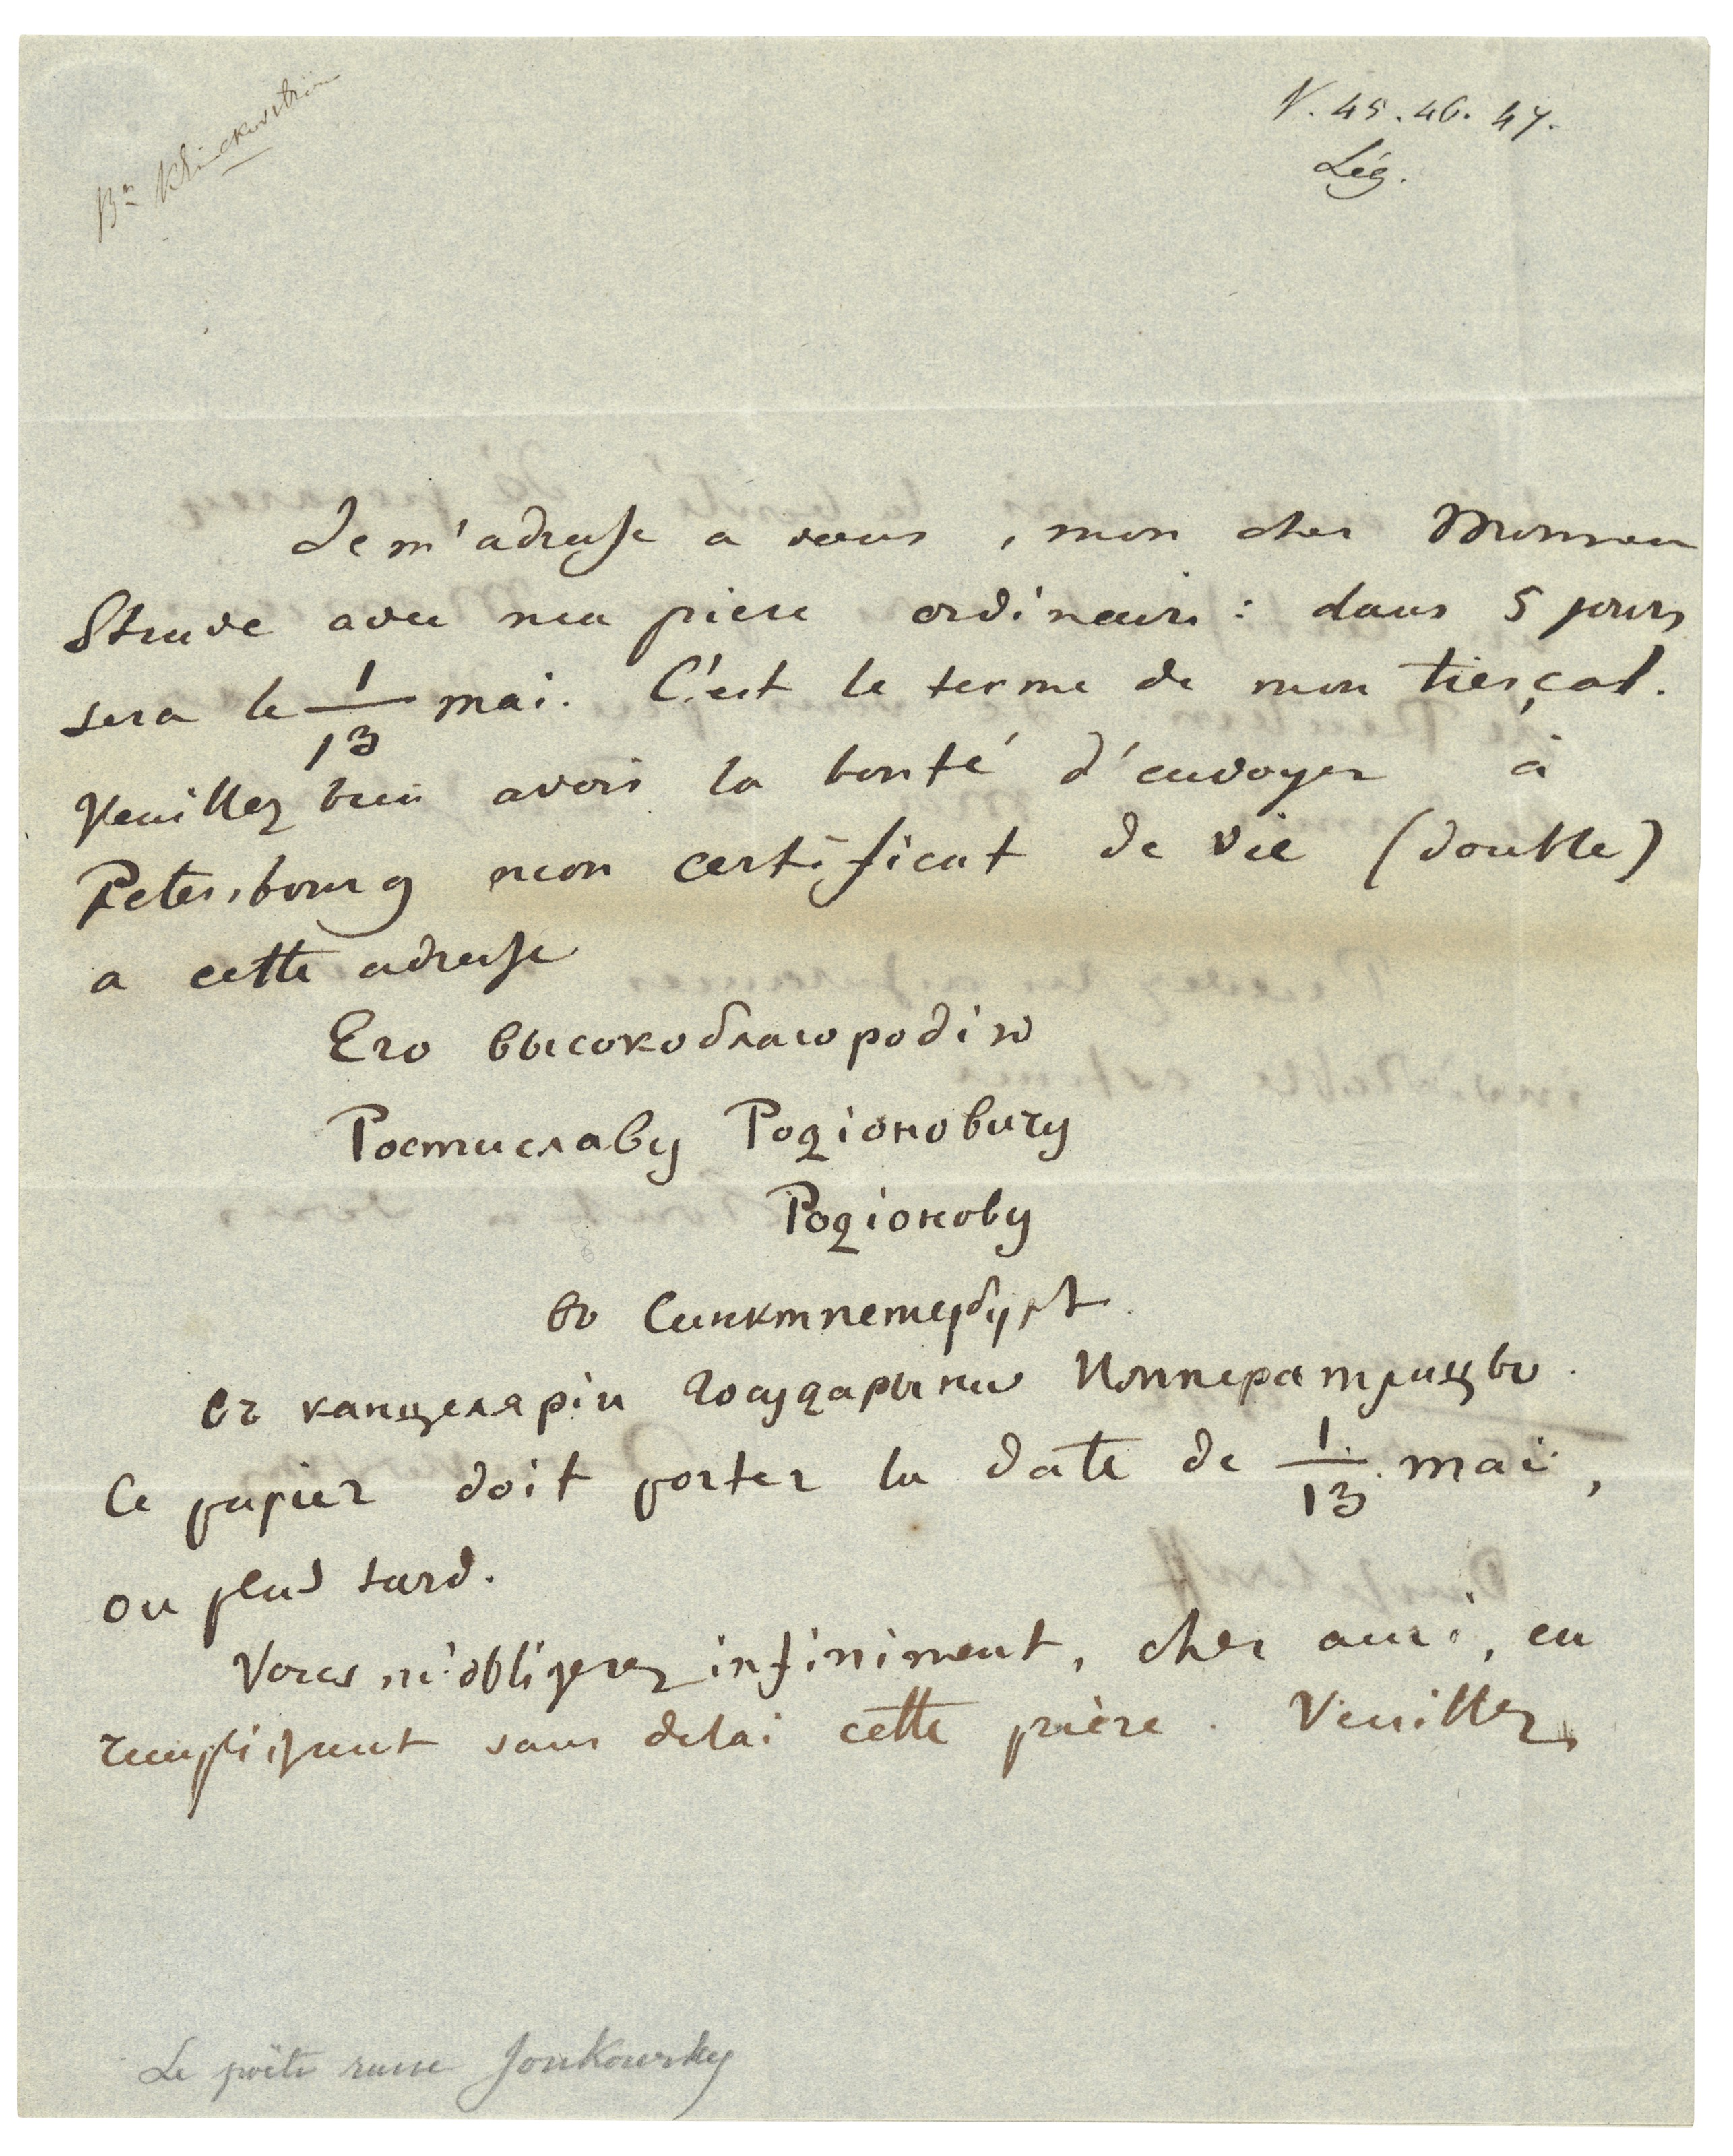 N. 45. 46. 47.
Lég.
Je m'adresse a vous, mon cher Monsieur
Struve avec ma priere ordinaire : dans 5 jours
sera le 1/13 mai. C'est le terme de mon tierçal.
Veuillez bien avoir la bonté d'envoyer à
Petersbourg mon certificat de vie (double)
a cette adresse
Его высокоблагородію
Ростиславу Родіоновичу
Родіонову
въ Санктпетербургѣ.
въ канцеляріи Государыни Императрицы.
Ce papier doit porter la date de 1/13 mai,
ou plus tard.
Vous m'obligerez infiniment, cher ami, en
remplissant sans delai cette prière. Veuillez
Le poëte russe Joukowsky